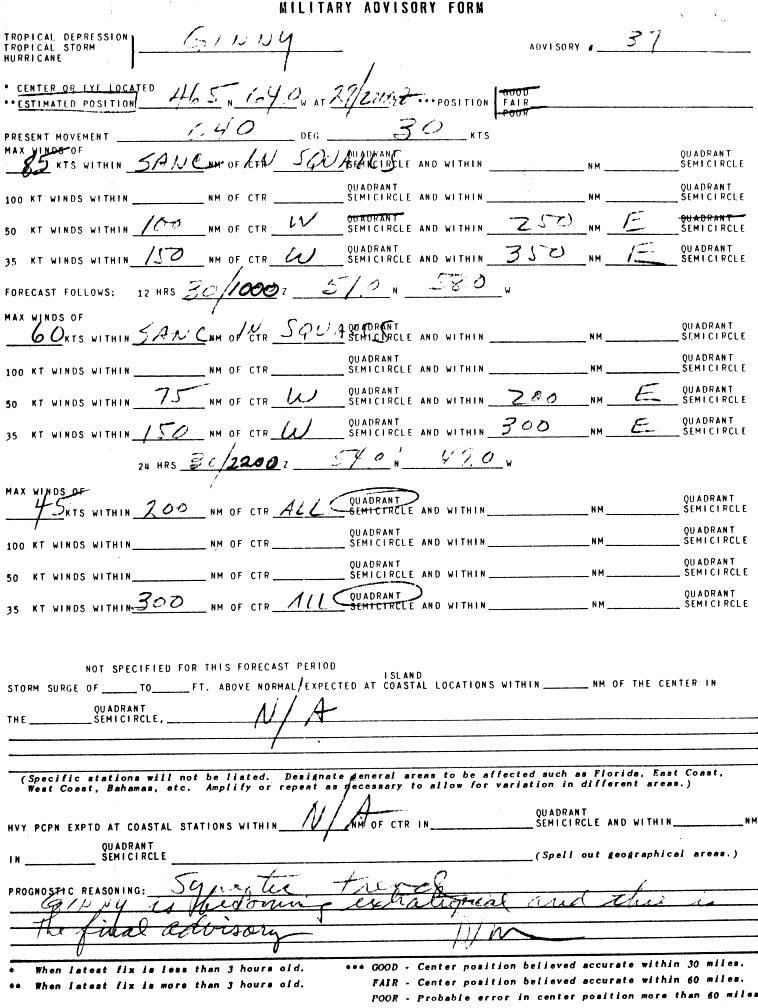 MILITARY ADVISORY FORM
TROPICAL DEPRESSION
TROPICAL STORM GINNY ADVISORY # 37
HURRICANE
* CENTER OR EYE LOCATED
**ESTIMATED POSITION 46.5 N 64.0 W AT 29/2200Z ***POSITION GOOD
FAIR
POOR
PRESENT MOVEMENT 040 DEG 30 KTS
MAX WINDS OF QUADRANT QUADRANT
85 KTS WITHIN SANC NM OF IN CTR SQUALLS SEMICIRCLE AND WITHIN NM SEMICIRCLE
QUADRANT QUADRANT
100 KT WINDS WITHIN NM OF CTR SEMICIRCLE AND WITHIN NM SEMICIRCLE
QUADRANT QUADRANT
50 KT WINDS WITHIN 100 NM OF CTR W SEMICIRCLE AND WITHIN 250 NM E SEMICIRCLE
QUADRANT QUADRANT
35 KT WINDS WITHIN 150 NM OF CTR W SEMICIRCLE AND WITHIN 350 NM E SEMICIRCLE
FORECAST FOLLOWS: 12 HRS 30/1000 Z 51.0 N 58.0 W
MAX WINDS OF QUADRANT QUADRANT
60 KTS WITHIN SANC NM OF IN CTR SQUALLS SEMICIRCLE AND WITHIN NM SEMICIRCLE
QUADRANT QUADRANT
100 KT WINDS WITHIN NM OF CTR SEMICIRCLE AND WITHIN NM SEMICIRCLE
QUADRANT QUADRANT
50 KT WINDS WITHIN 75 NM OF CTR W SEMICIRCLE AND WITHIN 200 NM E SEMICIRCLE
QUADRANT QUADRANT
35 KT WINDS WITHIN 150 NM OF CTR W SEMICIRCLE AND WITHIN 300 NM E SEMICIRCLE
24 HRS 30/2200 Z 54.0 N 49.0 W
MAX WINDS OF QUADRANT QUADRANT
45 KTS WITHIN 200 NM OF CTR ALL SEMICIRCLE AND WITHIN NM SEMICIRCLE
QUADRANT QUADRANT
100 KT WINDS WITHIN NM OF CTR SEMICIRCLE AND WITHIN NM SEMICIRCLE
QUADRANT QUADRANT
50 KT WINDS WITHIN NM OF CTR SEMICIRCLE AND WITHIN NM SEMICIRCLE
QUADRANT QUADRANT
35 KT WINDS WITHIN 300 NM OF CTR ALL SEMICIRCLE AND WITHIN NM SEMICIRCLE
NOT SPECIFIED FOR THIS FORECAST PERIOD
ISLAND
STORM SURGE OF TO FT. ABOVE NORMAL/EXPECTED AT COASTAL LOCATIONS WITHIN NM OF THE CENTER IN
QUADRANT
THE SEMICIRCLE, N/A
(Specific stations will not be listed. Designate general areas to be affected such as Florida, East Coast,
West Coast, Bahamas, etc. Amplify or repeat as necessary to allow for variation in different areas.)
QUADRANT
HVY PCPN EXPTD AT COASTAL STATIONS WITHIN N/A NM OF CTR IN SEMICIRCLE AND WITHIN NM
QUADRANT
IN SEMICIRCLE (Spell out geographical areas.)
PROGNOSTIC REASONING: Synoptic trends
GINNY is becoming extratropical and this is
the final advisory
* When latest fix is less than 3 hours old. *** GOOD - Center position believed accurate within 30 miles.
** When latest fix is more than 3 hours old. FAIR - Center position believed accurate within 60 miles.
POOR - Probable error in center position more than 60 miles